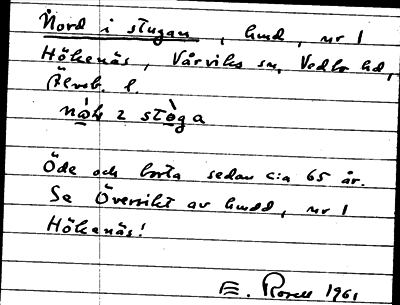 Nord i stugan, hmd, nr 1
Hökenäs, Vårviks sn, Vedbo hd,
Älvsb. l.
nòḷ 2 stò̤ga
Öde och borta sedan c:a 65 år.
Se Översikt av hmdd, nr 1
Hökenäs!
E. Rosell 1961